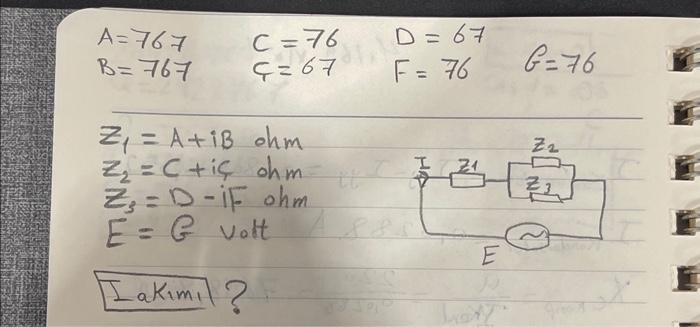 A=767 C=76 D=67
B=767 Ç=67 F=76 G=76
Z1 = A+iB ohm
Z2 = C+iÇ ohm
Z3 = D-iF ohm
E = G volt
I akımı ?
I Z1 Z2
Z3
E